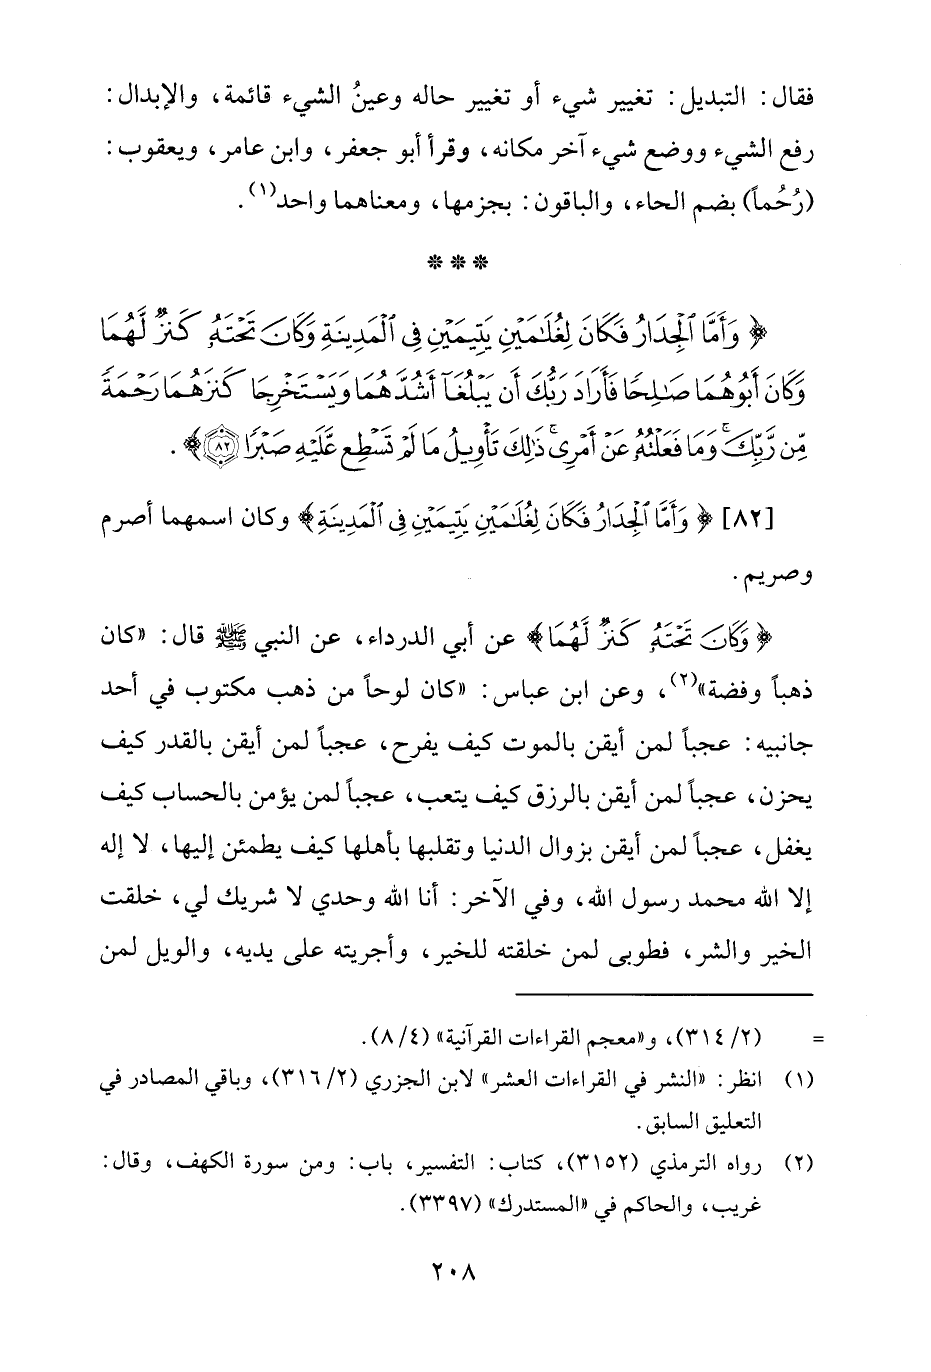 فقال: التبديل: تغيير شيء أو تغيير حاله وعينُ الشيء قائمة، والإبدال:
رفع الشيء ووضع شيء آخر مكانه، وقرأ أبو جعفر، وابن عامر، ويعقوب:
(رُحُماً) بضم الحاء، والباقون: بجزمها، ومعناهما واحد(١).
* * *
﴿ وَأَمَّا ٱلْجِدَارُ فَكَانَ لِغُلَٰمَيْنِ يَتِيمَيْنِ فِى ٱلْمَدِينَةِ وَكَانَ تَحْتَهُۥ كَنزٌ لَّهُمَا
وَكَانَ أَبُوهُمَا صَٰلِحًا فَأَرَادَ رَبُّكَ أَن يَبْلُغَآ أَشُدَّهُمَا وَيَسْتَخْرِجَا كَنزَهُمَا رَحْمَةً
مِّن رَّبِّكَ ۚ وَمَا فَعَلْتُهُۥ عَنْ أَمْرِى ۚ ذَٰلِكَ تَأْوِيلُ مَا لَمْ تَسْطِع عَّلَيْهِ صَبْرًا ٨٢ ﴾.
[٨٢] ﴿ وَأَمَّا ٱلْجِدَارُ فَكَانَ لِغُلَٰمَيْنِ يَتِيمَيْنِ فِى ٱلْمَدِينَةِ﴾ وكان اسمهما أصرم
وصريم.
﴿ وَكَانَ تَحْتَهُۥ كَنزٌ لَّهُمَا﴾ عن أبي الدرداء، عن النبي ﷺ قال: «كان
ذهباً وفضة»(٢)، وعن ابن عباس: «كان لوحاً من ذهب مكتوب في أحد
جانبيه: عجباً لمن أيقن بالموت كيف يفرح، عجباً لمن أيقن بالقدر كيف
يحزن، عجباً لمن أيقن بالرزق كيف يتعب، عجباً لمن يؤمن بالحساب كيف
يغفل، عجباً لمن أيقن بزوال الدنيا وتقلبها بأهلها كيف يطمئن إليها، لا إله
إلا الله محمد رسول الله، وفي الآخر: أنا الله وحدي لا شريك لي، خلقت
الخير والشر، فطوبى لمن خلقته للخير، وأجريته على يديه، والويل لمن
= (٢/ ٣١٤)، و«معجم القراءات القرآنية» (٤/ ٨).
(١) انظر: «النشر في القراءات العشر» لابن الجزري (٢/ ٣١٦)، وباقي المصادر في
التعليق السابق.
(٢) رواه الترمذي (٣١٥٢)، كتاب: التفسير، باب: ومن سورة الكهف، وقال:
غريب، والحاكم في «المستدرك» (٣٣٩٧).
٢٠٨